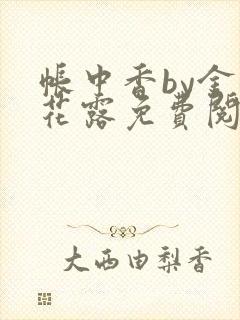 帳中香by金
花露免費閱
大西由梨香